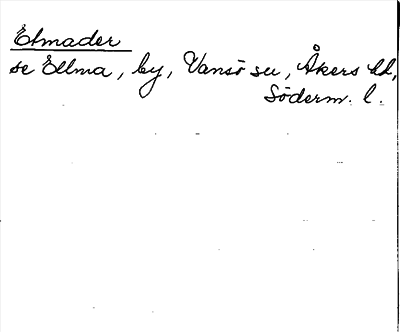 Elmader
se Ellma, by, Vansö sn, Åkers hd,
Söderm. l.